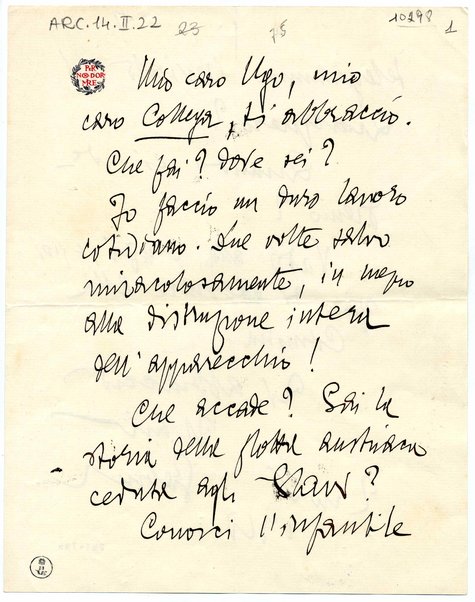 ARC.14.II.22
23
75
10298
1
PER
NON DOR
MIRE
Mio caro Ugo, mio
caro Collega, ti abbraccio.
Che fai? Dove sei?
Io faccio un duro lavoro
cotidiano. Due volte salvo
miracolosamente, in mezzo
alla distruzione intera
dell'apparecchio!
Che accade? Sai la
storia della flotta austriaca
ceduta agli Slavi?
Conosci l'infantile